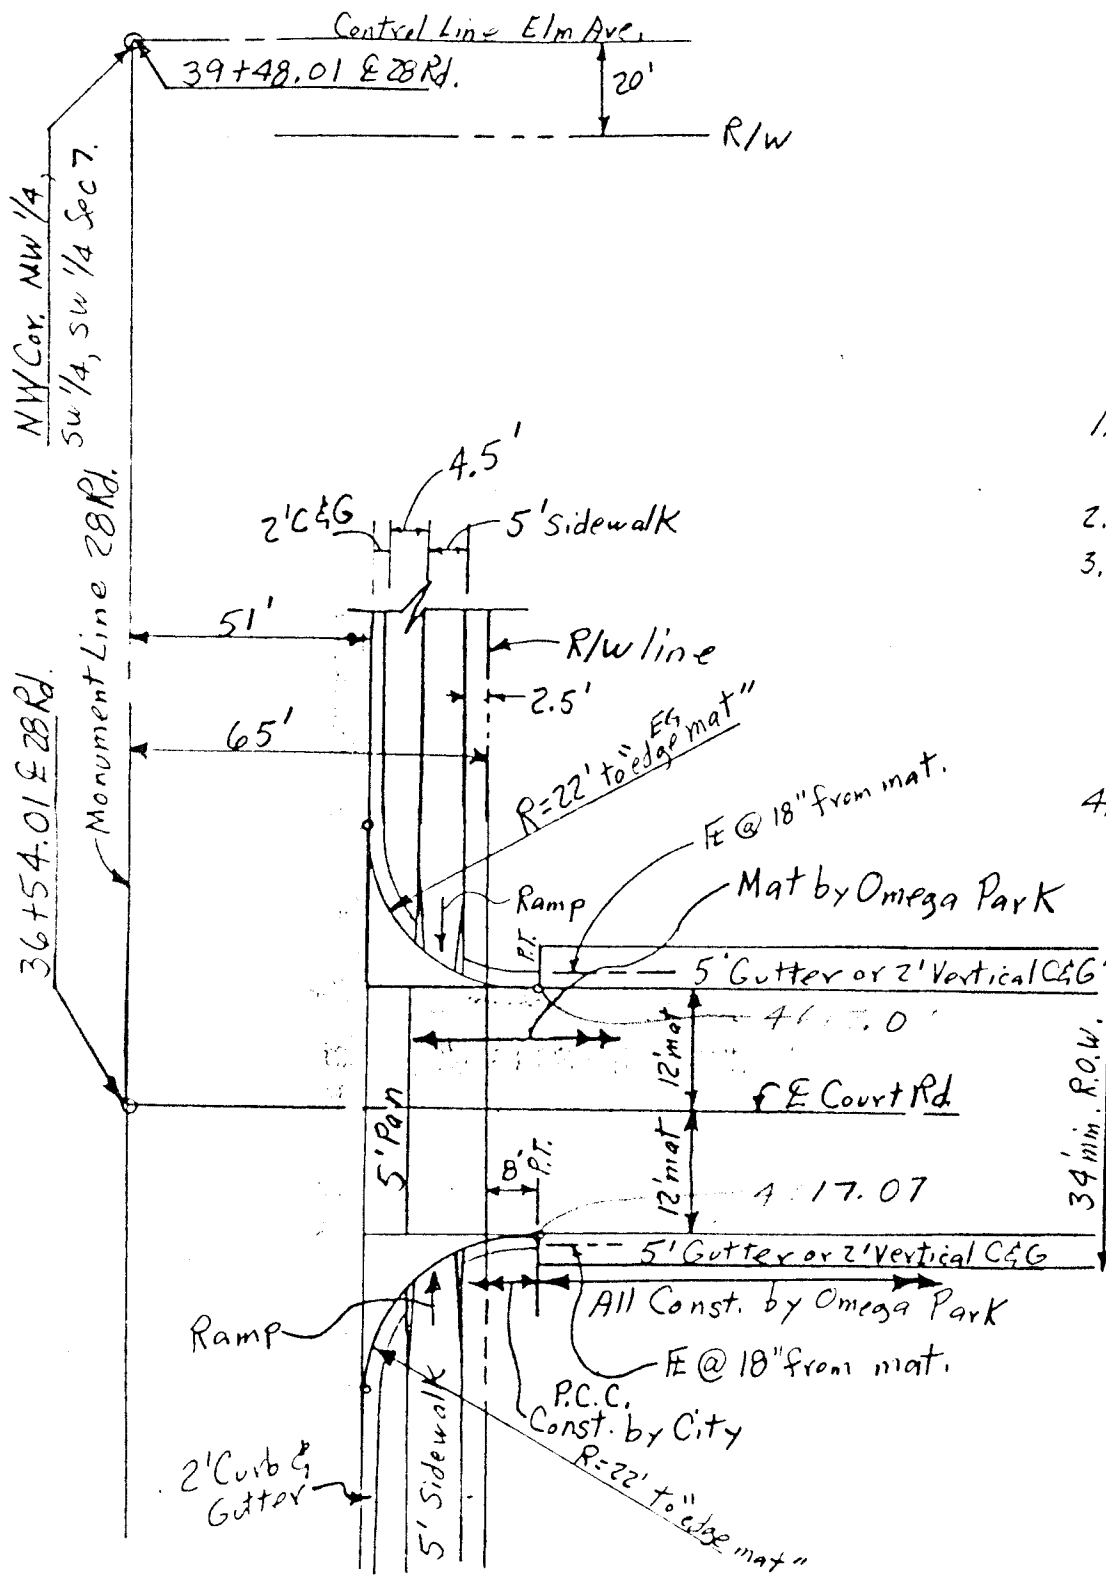 Control Line Elm Ave.
39+48.01 ℄ 28 Rd.
20'
R/W
NW Cor. NW 1/4,
SW 1/4, SW 1/4 Sec 7.
Monument Line 28 Rd.
36+54.01 ℄ 28 Rd.
4.5'
2' C&G
5' sidewalk
1.
2.
3.
4.
51'
R/W line
2.5'
65'
R=22' to "edge mat"
EG
FL @ 18" from mat.
Mat by Omega Park
Ramp
P.T.
5' Gutter or 2' Vertical C&G
12' mat
℄ Court Rd
34' min. R.O.W.
5' Pan
12' mat
8'
P.T.
17.07
5' Gutter or 2' Vertical C&G
All Const. by Omega Park
Ramp
FL @ 18" from mat.
P.C.C.
Const. by City
R=22' to "edge mat"
2' Curb &
Gutter
5' Sidewalk